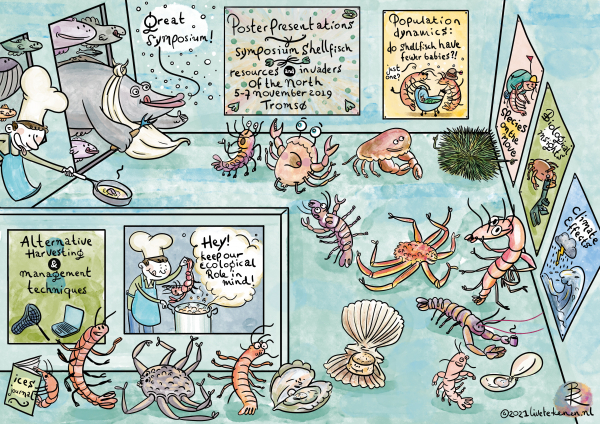 Great
Symposium!
Poster Presentations
Symposium Shellfisch
resources and invaders
of the North
5-7 november 2019
Tromsø
Population
dynamics:
do shellfisch have
fewer babies?!
just
one?
Species
on the
move
Biological
insights
Climate
Effects
Alternative
Harvesting
&
management
techniques
Hey!
keep our
ecological
Role in
mind!
ices
journal
©2021 livetekenen.nl